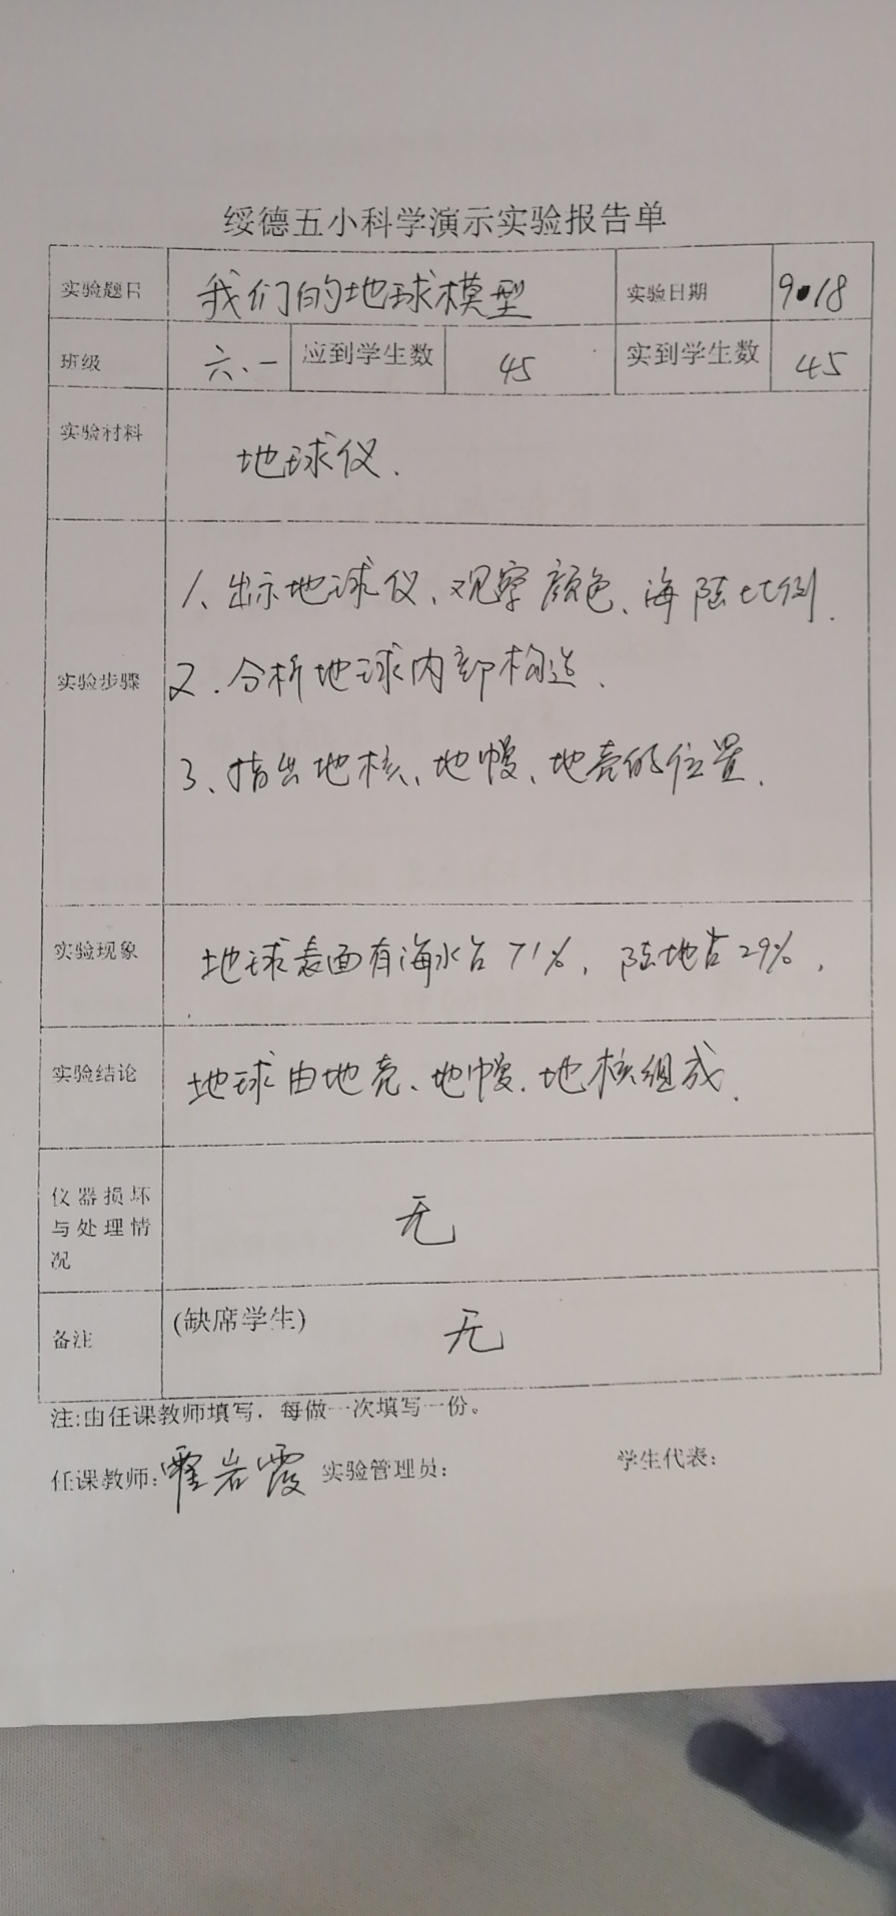 绥德五小科学演示实验报告单
实验题目 我们的地球模型 实验日期 9.18
班级 六、一 应到学生数 45 实到学生数 45
实验材料 地球仪.
实验步骤
1、出示地球仪、观察颜色、海陆比例.
2.分析地球内部构造、
3、指出地核、地幔、地壳的位置.
实验现象 地球表面有海水占71%,陆地占29%,
实验结论 地球由地壳、地幔.地核组成.
仪器损坏
与处理情
况
无
备注 (缺席学生) 无
注:由任课教师填写,每做一次填写一份。
任课教师: 霍岩霞 实验管理员: 学生代表: